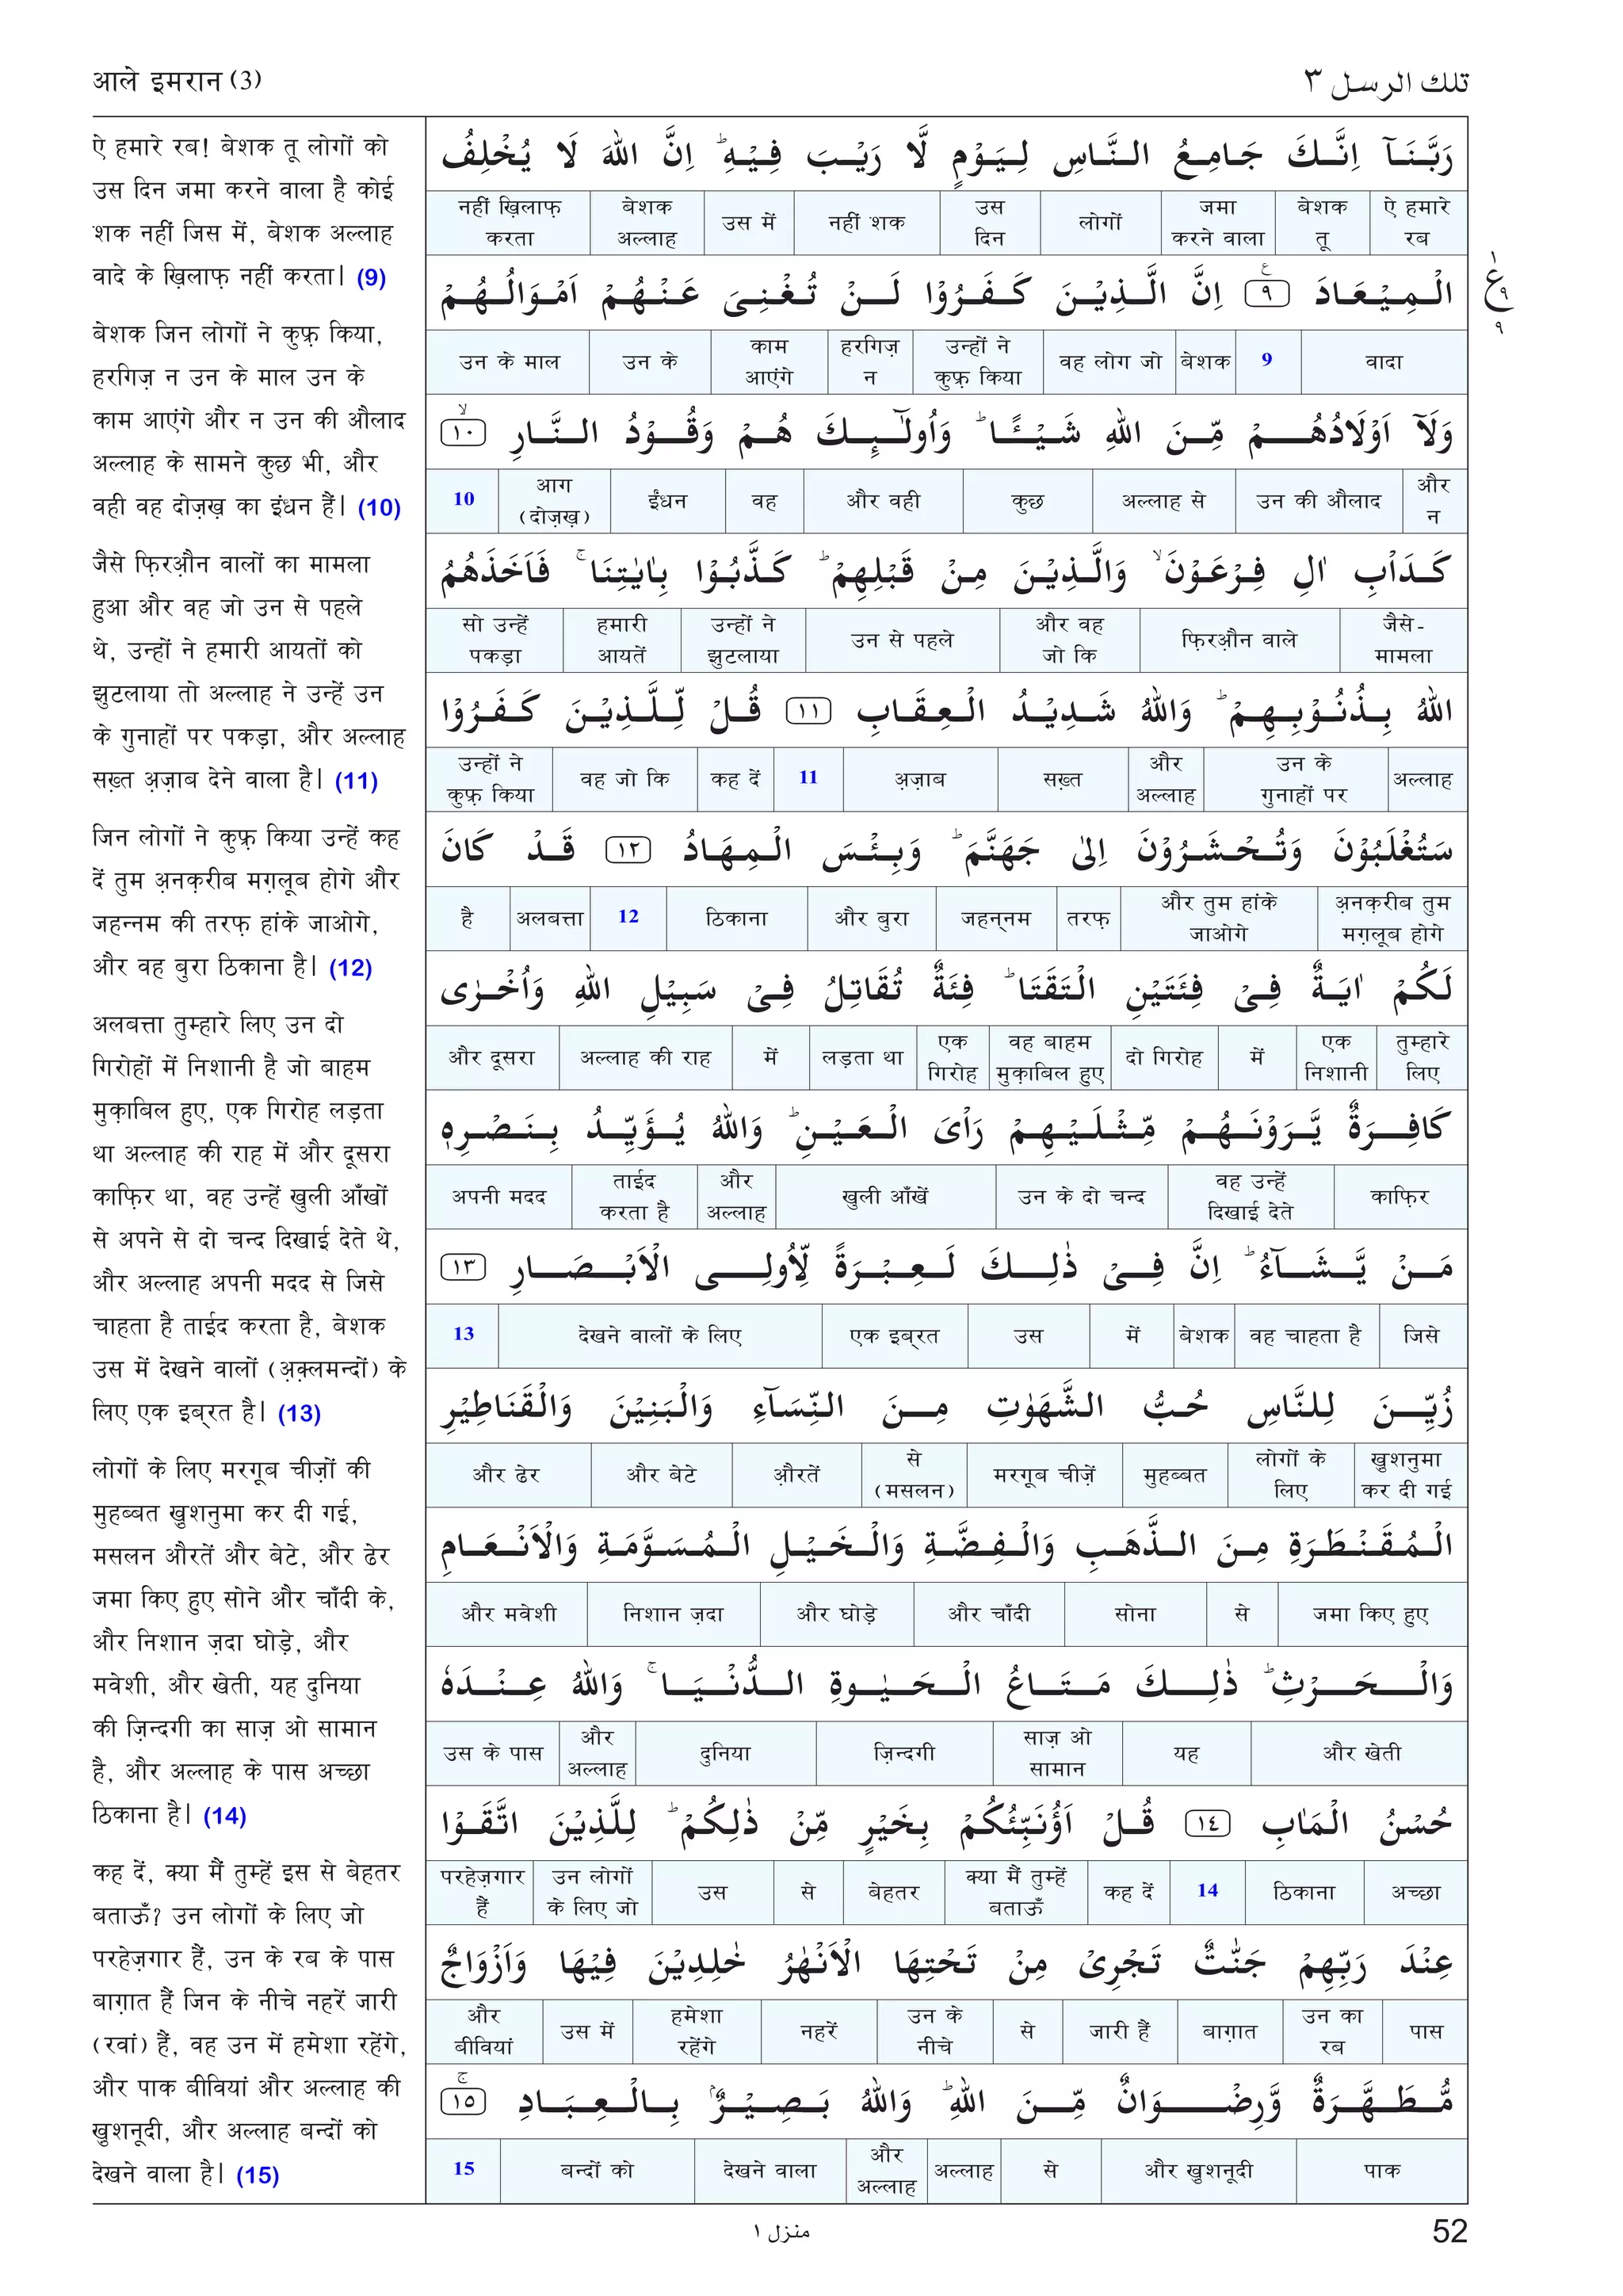 आले इमरान (3)
تلك الرسل ٣
ऐ हमारे रब! बेशक तू लोगों को
उस दिन जमा करने वाला है कोई
शक नहीं जिस में, बेशक अल्लाह
वादे के ख़िलाफ़ नहीं करता। (9)
बेशक जिन लोगों ने कुफ़्र किया,
हरगिज़ न उन के माल उन के
काम आएंगे और न उन की औलाद
अल्लाह के सामने कुछ भी, और
वही वह दोज़ख़ का इंधन हैं। (10)
जैसे फ़िरऔ़न वालों का मामला
हुआ और वह जो उन से पहले
थे, उन्हों ने हमारी आयतों को
झुटलाया तो अल्लाह ने उन्हें उन
के गुनाहों पर पकड़ा, और अल्लाह
सख़्त अ़ज़ाब देने वाला है। (11)
जिन लोगों ने कुफ़्र किया उन्हें कह
दें तुम अ़नक़रीब मग़लूब होगे और
जहन्नम की तरफ़ हांके जाओगे,
और वह बुरा ठिकाना है। (12)
अलबत्ता तुम्हारे लिए उन दो
गिरोहों में निशानी है जो बाहम
मुक़ाबिल हुए, एक गिरोह लड़ता
था अल्लाह की राह में और दूसरा
काफ़िर था, वह उन्हें खुली आँखों
से अपने से दो चन्द दिखाई देते थे,
और अल्लाह अपनी मदद से जिसे
चाहता है ताईद करता है, बेशक
उस में देखने वालों (अ़क़्लमन्दों) के
लिए एक इब्‌रत है। (13)
लोगों के लिए मरगूब चीज़ों की
मुहब्बत खुशनुमा कर दी गई,
मसलन औरतें और बेटे, और ढेर
जमा किए हुए सोने और चाँदी के,
और निशान ज़दा घोड़े, और
मवेशी, और खेती, यह दुनिया
की ज़िन्दगी का साज़ ओ सामान
है, और अल्लाह के पास अच्छा
ठिकाना है। (14)
कह दें, क्या मैं तुम्हें इस से बेहतर
बताऊँ? उन लोगों के लिए जो
परहेज़गार हैं, उन के रब के पास
बाग़ात हैं जिन के नीचे नहरें जारी
(रवां) हैं, वह उन में हमेशा रहेंगे,
और पाक बीवियां और अल्लाह की
खुशनूदी, और अल्लाह बन्दों को
देखने वाला है। (15)
رَبَّنَآ اِنَّكَ جَامِعُ النَّاسِ لِيَوْمٍ لَّا رَيْبَ فِيْهِ ؕ اِنَّ اللهَ لَا يُخْلِفُ
ऐ हमारे रब बेशक तू जमा करने वाला लोगों उस दिन नहीं शक उस में बेशक अल्लाह नहीं ख़िलाफ़ करता
الْمِيْعَادَ ٩ اِنَّ الَّذِيْنَ كَفَرُوْا لَنْ تُغْنِىَ عَنْهُمْ اَمْوَالُهُمْ
वादा 9 बेशक वह लोग जो उन्हों ने कुफ़्र किया हरगिज़ न काम आएंगे उन के उन के माल
وَلَآ اَوْلَادُهُمْ مِّنَ اللهِ شَيْـًٔا ؕ وَاُولٰٓئِكَ هُمْ وَقُوْدُ النَّارِ ١٠
और न उन की औलाद अल्लाह से कुछ और वही वह ईंधन आग (दोज़ख़) 10
كَدَاْبِ اٰلِ فِرْعَوْنَ ۙ وَالَّذِيْنَ مِنْ قَبْلِهِمْ ؕ كَذَّبُوْا بِاٰيٰتِنَا ۚ فَاَخَذَهُمُ
जैसे- मामला फ़िरऔ़न वाले और वह जो कि उन से पहले उन्हों ने झुटलाया हमारी आयतें सो उन्हें पकड़ा
اللهُ بِذُنُوْبِهِمْ ؕ وَاللهُ شَدِيْدُ الْعِقَابِ ١١ قُلْ لِّلَّذِيْنَ كَفَرُوْا
अल्लाह उन के गुनाहों पर और अल्लाह सख़्त अ़ज़ाब 11 कह दें वह जो कि उन्हों ने कुफ़्र किया
سَتُغْلَبُوْنَ وَتُحْشَرُوْنَ اِلٰى جَهَنَّمَ ؕ وَبِئْسَ الْمِهَادُ ١٢ قَدْ كَانَ
अ़नक़रीब तुम मग़लूब होगे और तुम हांके जाओगे तरफ़ जहन्‌नम और बुरा ठिकाना 12 अलबत्ता है
لَكُمْ اٰيَةٌ فِىْ فِئَتَيْنِ الْتَقَتَا ؕ فِئَةٌ تُقَاتِلُ فِىْ سَبِيْلِ اللهِ وَاُخْرٰى
तुम्हारे लिए एक निशानी में दो गिरोह वह बाहम मुक़ाबिल हुए एक गिरोह लड़ता था में अल्लाह की राह और दूसरा
كَافِرَةٌ يَّرَوْنَهُمْ مِّثْلَيْهِمْ رَاْىَ الْعَيْنِ ؕ وَاللهُ يُؤَيِّدُ بِنَصْرِهٖ
काफ़िर वह उन्हें दिखाई देते उन के दो चन्द खुली आँखें और अल्लाह ताईद करता है अपनी मदद
مَنْ يَّشَآءُ ؕ اِنَّ فِىْ ذٰلِكَ لَعِبْرَةً لِّاُولِى الْاَبْصَارِ ١٣
जिसे वह चाहता है बेशक में उस एक इब्‌रत देखने वालों के लिए 13
زُيِّنَ لِلنَّاسِ حُبُّ الشَّهَوٰتِ مِنَ النِّسَآءِ وَالْبَنِيْنَ وَالْقَنَاطِيْرِ
खुशनुमा कर दी गई लोगों के लिए मुहब्बत मरगूब चीज़ें से (मसलन) औ़रतें और बेटे और ढेर
الْمُقَنْطَرَةِ مِنَ الذَّهَبِ وَالْفِضَّةِ وَالْخَيْلِ الْمُسَوَّمَةِ وَالْاَنْعَامِ
जमा किए हुए से सोना और चाँदी और घोड़े निशान ज़दा और मवेशी
وَالْحَرْثِ ؕ ذٰلِكَ مَتَاعُ الْحَيٰوةِ الدُّنْيَا ۚ وَاللهُ عِنْدَهٗ
और खेती यह साज़ ओ सामान ज़िन्दगी दुनिया और अल्लाह उस के पास
حُسْنُ الْمَاٰبِ ١٤ قُلْ اَؤُنَبِّئُكُمْ بِخَيْرٍ مِّنْ ذٰلِكُمْ ؕ لِلَّذِيْنَ اتَّقَوْا
अच्छा ठिकाना 14 कह दें क्या मैं तुम्हें बताऊँ बेहतर से उस उन लोगों के लिए जो परहेज़गार हैं
عِنْدَ رَبِّهِمْ جَنّٰتٌ تَجْرِىْ مِنْ تَحْتِهَا الْاَنْهٰرُ خٰلِدِيْنَ فِيْهَا وَاَزْوَاجٌ
पास उन का रब बाग़ात जारी हैं से उन के नीचे नहरें हमेशा रहेंगे उस में और बीवियां
مُّطَهَّرَةٌ وَّرِضْوَانٌ مِّنَ اللهِ ؕ وَاللهُ بَصِيْرٌۢ بِالْعِبَادِ ١٥
पाक और खुशनूदी से अल्लाह और अल्लाह देखने वाला बन्दों को 15
ع
٩
٩
منزل ١
52